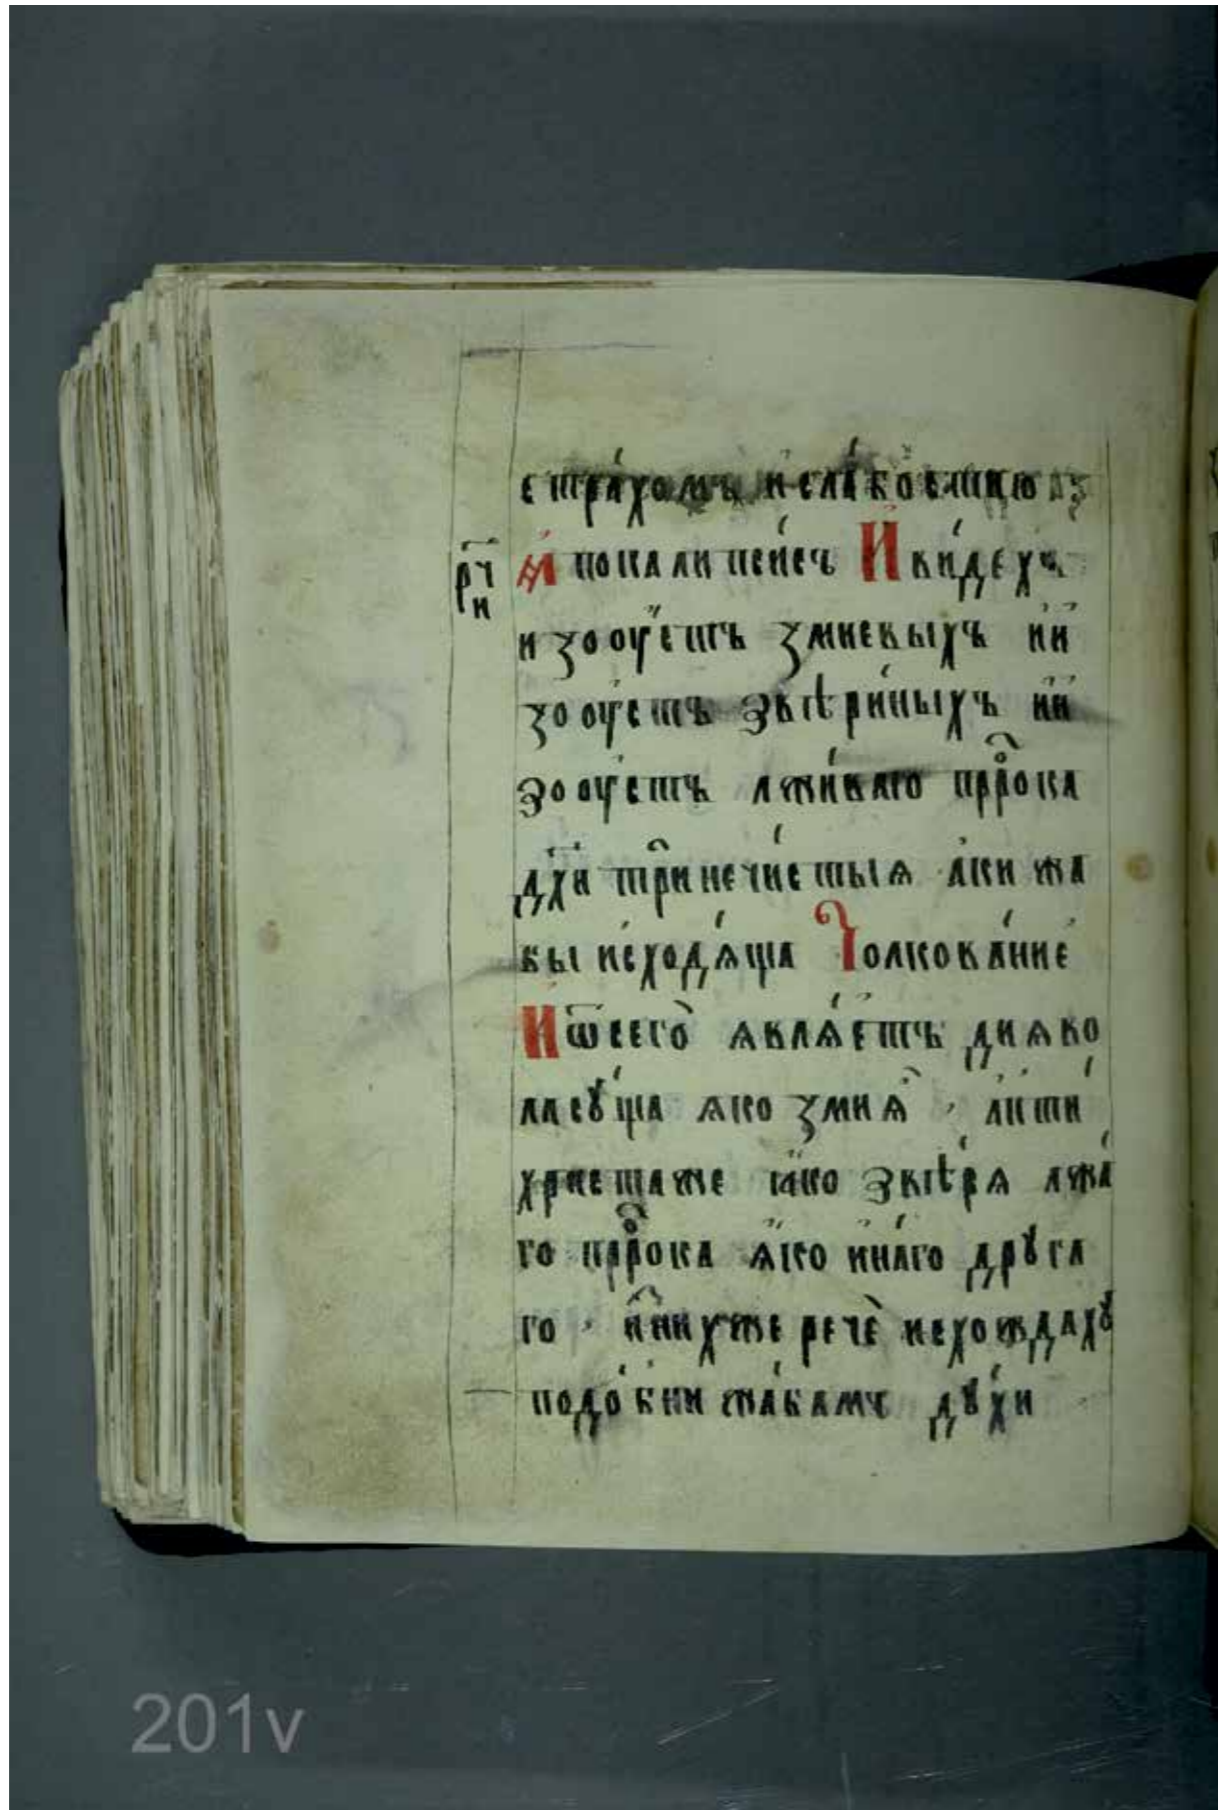 страхомъ и слабостию
рч҃и
Апокалипсисъ И видехъ
изооустъ змиевыхъ ии
зооустъ звѣриныхъ ии
зооустъ лживаго прⷪ҇рока
дх҃и три нечистыѧ аки жа
бы исходѧща Толкование
И ѿсего ѧвлѧетъ диѧво
ла сꙋща ѧко змиѧ , анти
христа же ꙗко звѣрѧ лжа
го прⷪ҇рока ѧко инаго дрꙋга
го , и нихже рече исхождахꙋ
подобни жабамъ дꙋхи
201v